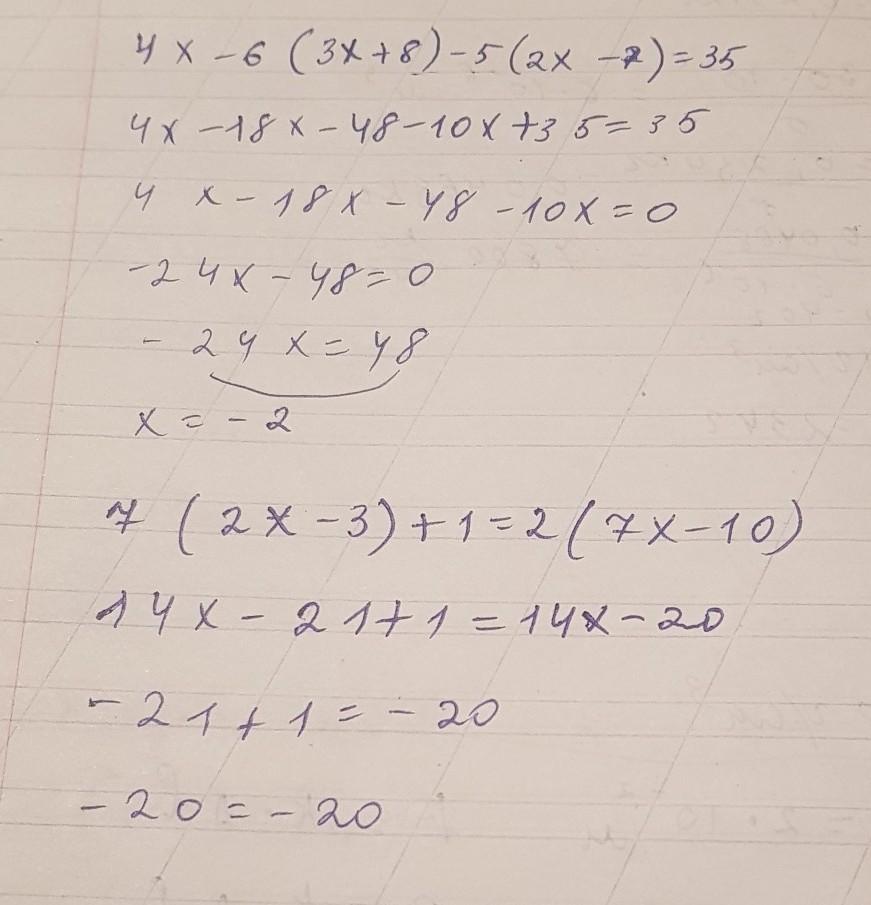 4x-6(3x+8)-5(2x-7)=35
4x-18x-48-10x+35=35
4x-18x-48-10x=0
-24x-48=0
-24x=48
x=-2
7(2x-3)+1=2(7x-10)
14x-21+1=14x-20
-21+1=-20
-20=-20